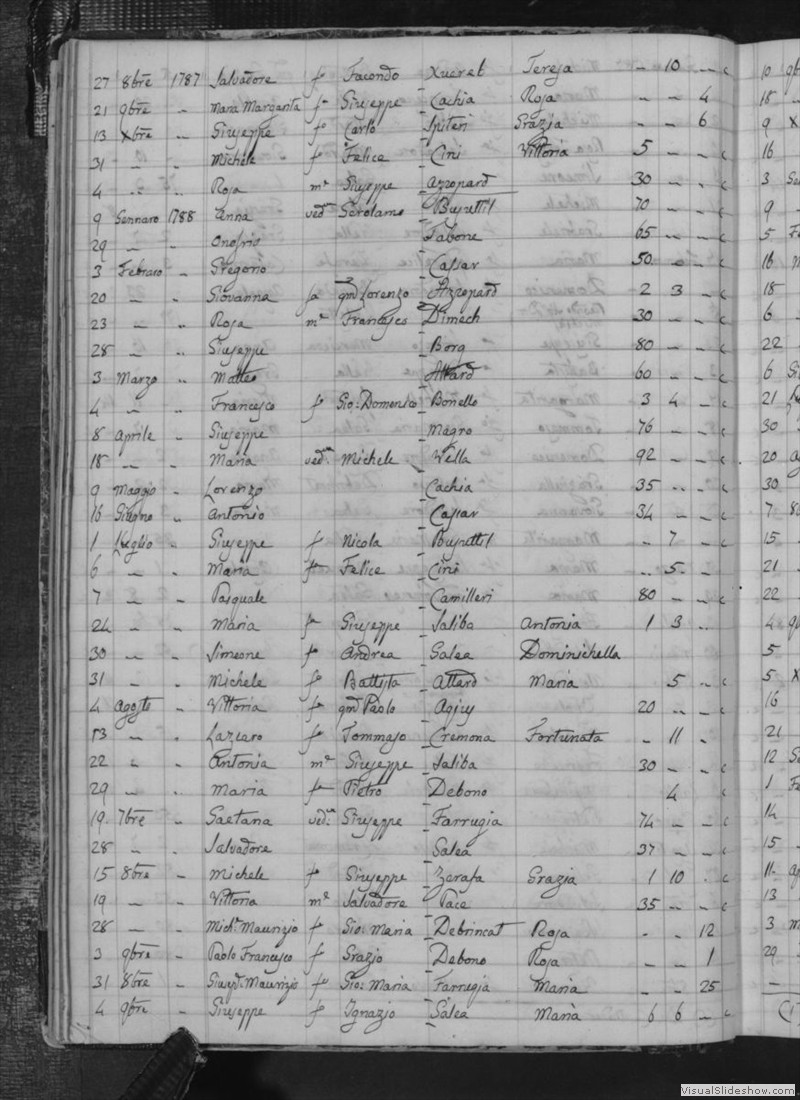 27 8bre 1787 Salvadore f Facondo Xuereb Teresa – 10 – c
21 9bre " Maria Margarita f Giuseppe Cachia Rosa – – 4
13 Xbre " Giuseppe f Carlo Spiteri Grazia – – 6
31 – " Michele f Felice Cini Vittoria 5 – – c
4 " " Rosa me Giuseppe Azzopardi 30 – – c
9 Gennaro 1788 Anna veda Gerolamo Busuttil 70 – – c
29 – " Onofrio Fabone 65 – – c
3 Febraro " Gregorio Cassar 50 – – c
20 – " Giovanna fa qm Lorenzo Azzopard 2 3 – c
23 – " Rosa me Francesco Dimech 30 – – c
28 – " Giuseppe Borg 80 – – c
3 Marzo " Matteo Attard 60 – – c
4 – " Francesco f Gio: Domenico Bonello 3 4 – c
8 Aprile " Giuseppe Magro 76 – – c
18 – " Maria veda Michele Vella 92 – – c
9 Maggio " Lorenzo Cachia 35 – – c
16 Giugno " Antonio Cassar 34 – – c
1 Luglio " Giuseppe f Nicola Busuttil – 7 – c
6 – " Maria fa Felice Cini – 5 – c
7 – " Pasquale Camilleri 80 – – c
24 – " Maria fa Giuseppe Saliba Antonia 1 3 –
30 – " Simeone f Andrea Galea Dominichella
31 – " Michele f Battista Attard Maria 5 – c
4 Agosto " Vittoria fa qm Paolo Agius 20 – – c
13 – " Lazzaro f Tommaso Cremona Fortunata – 11 –
22 – " Antonia me Giuseppe Saliba 30 – – c
29 – " Maria fa Pietro Debono 4 c
19 7bre " Gaetana veda Giuseppe Farrugia 74 – – c
28 – " Salvadore Galea 37 – – c
15 8bre " Michele f Giuseppe Zerafa Grazia 1 10 – c
19 – " Vittoria me Salvadore Pace 35 – – c
28 – " Michl Maurizio f Gio: Maria Debrincat Rosa – – 12
3 9bre " Paolo Francesco f Grazio Debono Rosa – – 1
31 8bre " Giusp: Maurizio f Gio: Maria Farrugia Maria – – 25
4 9bre " Giuseppe f Ignazio Galea Maria 6 6 – c
VisualSlideshow.com